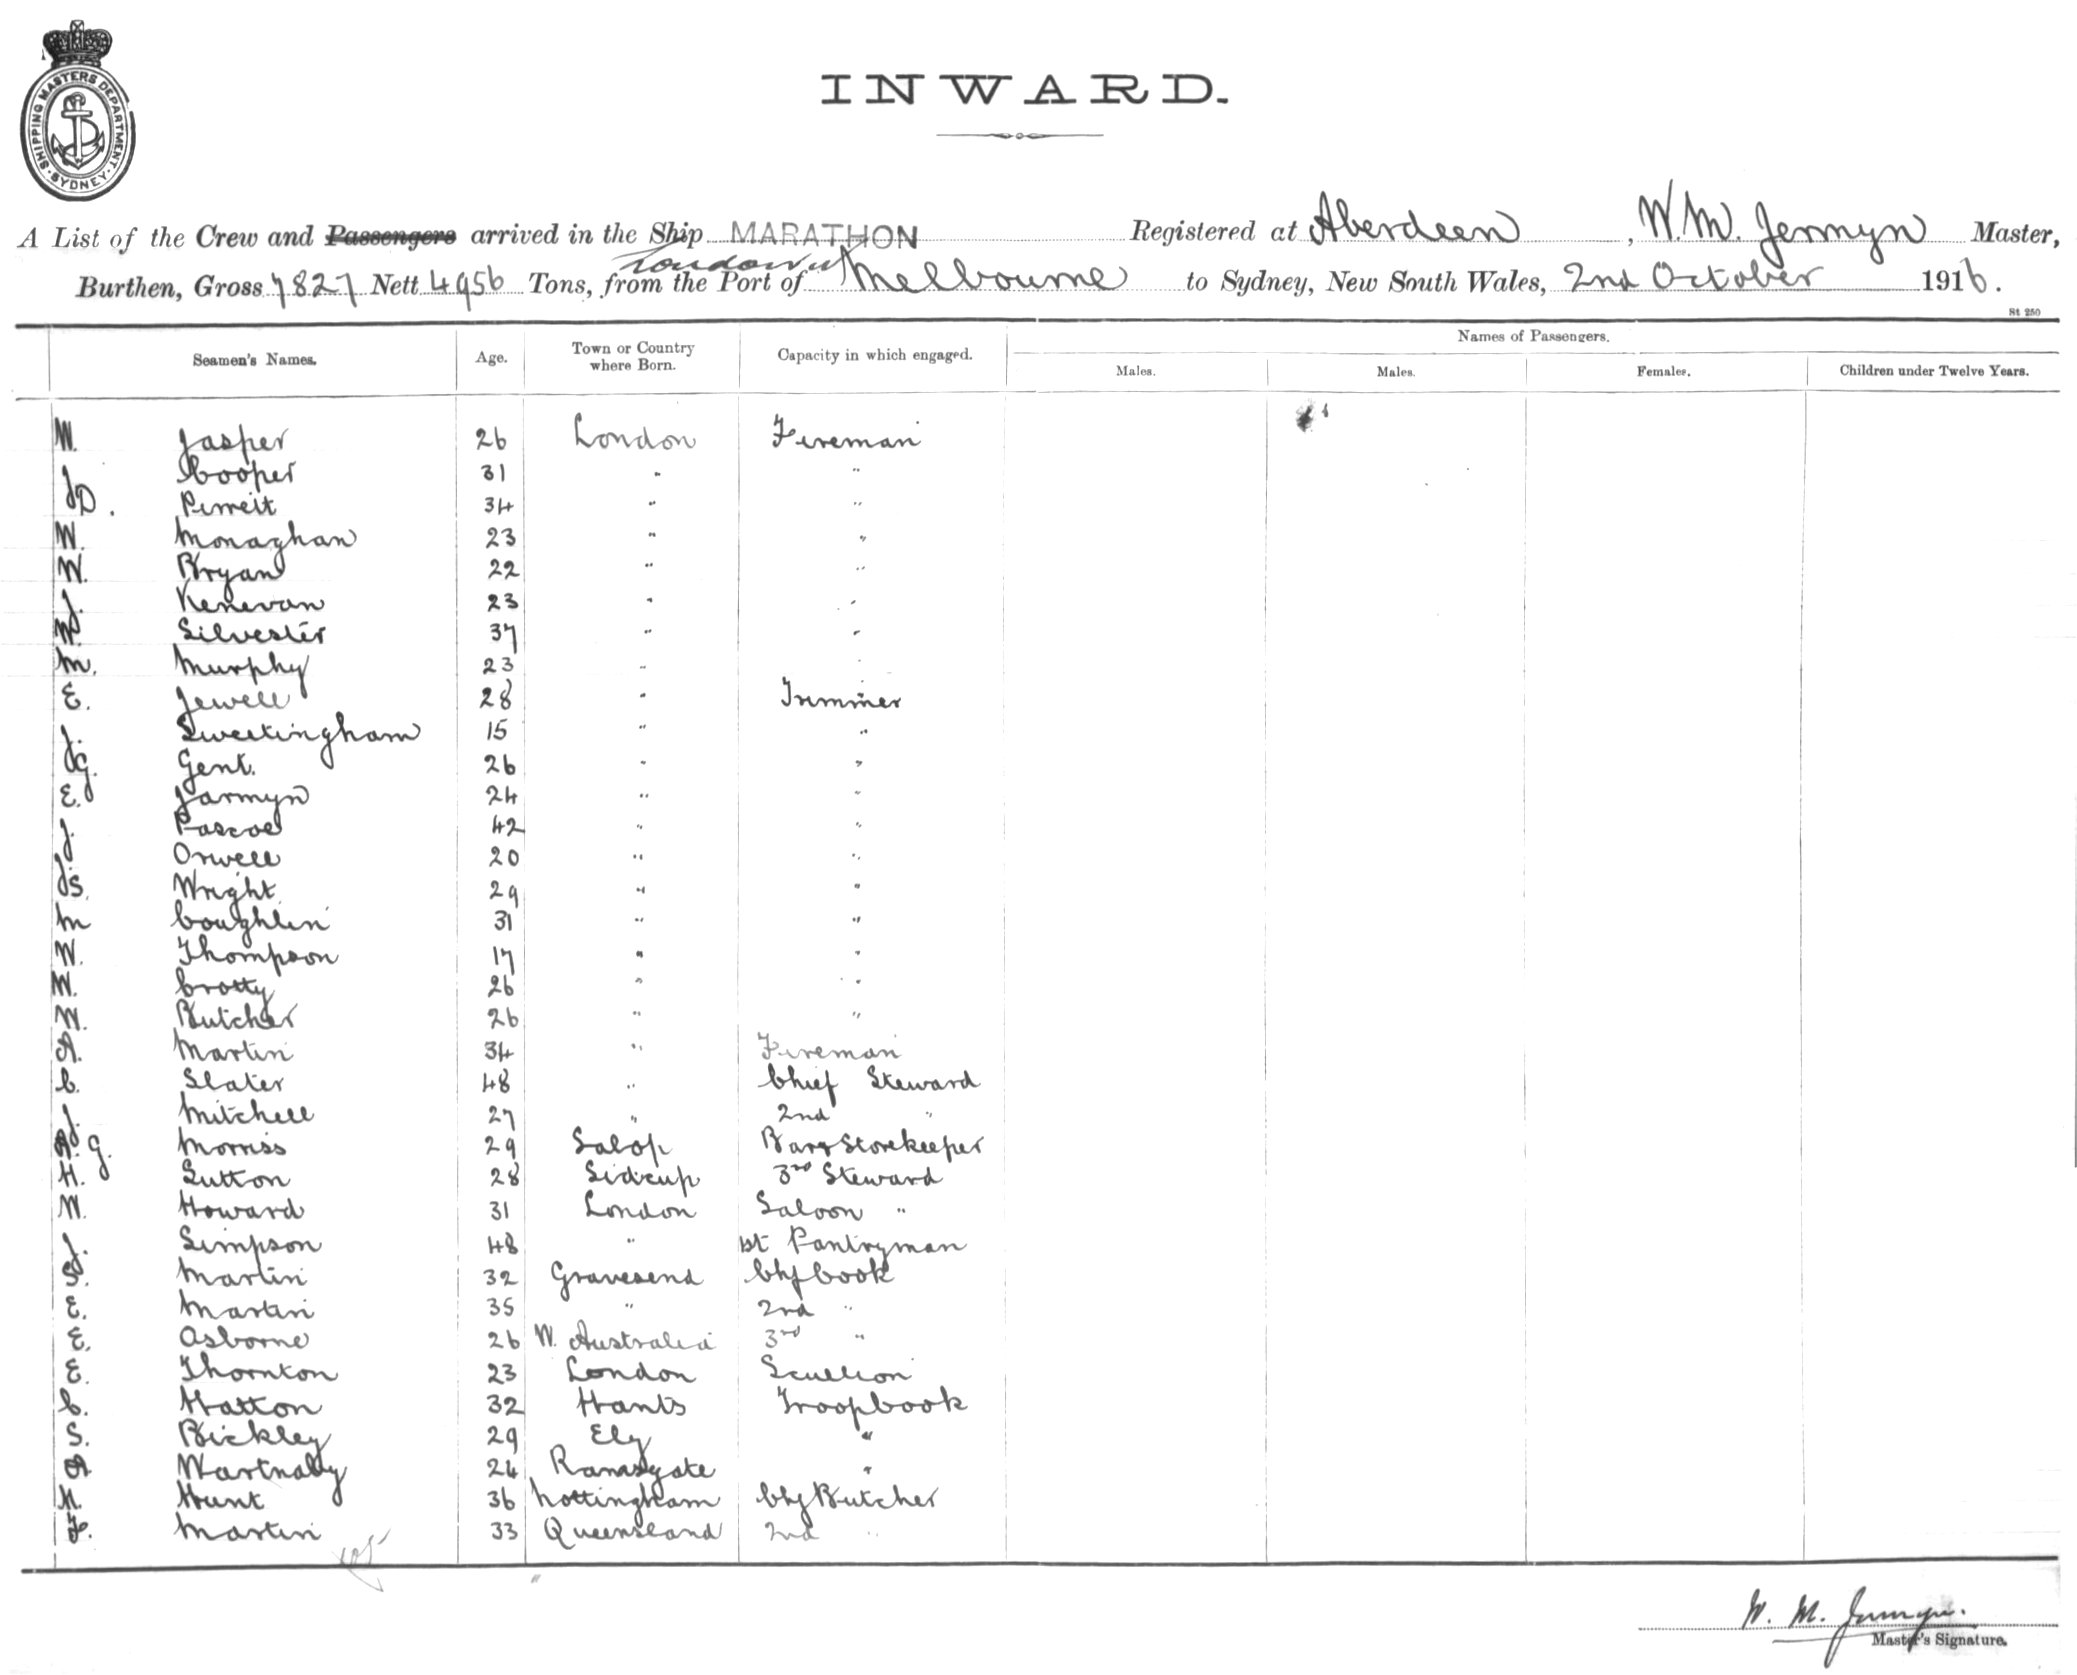 SHIPPING MASTERS DEPARTMENT
SYDNEY
INWARD.
A List of the Crew and Passengers arrived in the Ship MARATHON Registered at Aberdeen, W. M. Jermyn Master,
London via
Burthen, Gross 7827 Nett 4956 Tons, from the Port of Melbourne to Sydney, New South Wales, 2nd October 1916.
St 250
Seamen's Names. Age. Town or Country where Born. Capacity in which engaged. Names of Passengers.
Males. Males. Females. Children under Twelve Years.
W. Jasper 26 London Fireman
J. Cooper 31 " "
D. Perrett 34 " "
W. Monaghan 23 " "
W. Bryan 22 " "
J. Kenevan 23 " "
W. Silvester 37 " "
M. Murphy 23 "
E. Jewell 28 " Trimmer
J. Sweetingham 15 " "
G. Gent. 26 " "
E. Jarmyn 24 " "
J. Pascoe 42 " "
J. Orwell 20 " "
S. Wright 29 " "
M Coughlin 31 " "
W. Thompson 17 " "
W. Crotty 26 " "
W. Butcher 26 " "
A. Martin 34 " Fireman
C. Slater 48 " Chief Steward
J. Mitchell 27 " 2nd "
A. G. Morriss 29 Salop Bar & Storekeeper
H. Sutton 28 Sidcup 3rd Steward
W. Howard 31 London Saloon "
J. Simpson 48 " 1st Pantryman
S. Martin 32 Gravesend Chf Cook
E. Martin 35 " 2nd "
E. Osborne 26 W. Australia 3rd "
E. Thornton 23 London Scullion
C. Hatton 32 Hants Troop Cook
S. Bickley 29 Ely "
A. Wartnaby 24 Ramsgate "
N. Hunt 36 Nottingham Chf Butcher
F. Martin 33 Queensland 2nd "
W. M. Jermyn.
Master's Signature.